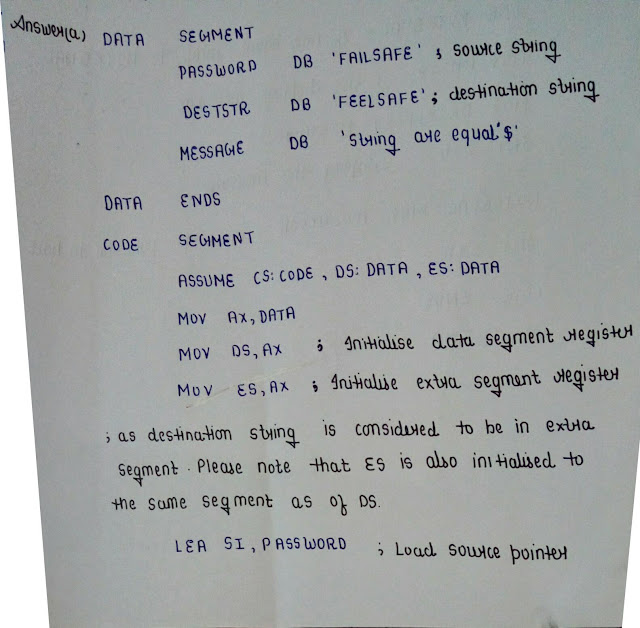 Answer(a) DATA SEGMENT
PASSWORD DB 'FAILSAFE' ; source string
DESTSTR DB 'FEELSAFE' ; destination string
MESSAGE DB 'String are equal'$'
DATA ENDS
CODE SEGMENT
ASSUME CS:CODE, DS:DATA, ES:DATA
MOV AX,DATA
MOV DS,AX ; Initialise data segment register
MOV ES,AX ; Initialise extra segment register
; as destination string is considered to be in extra
segment. Please note that ES is also initialised to
the same segment as of DS.
LEA SI, PASSWORD ; Load source pointer